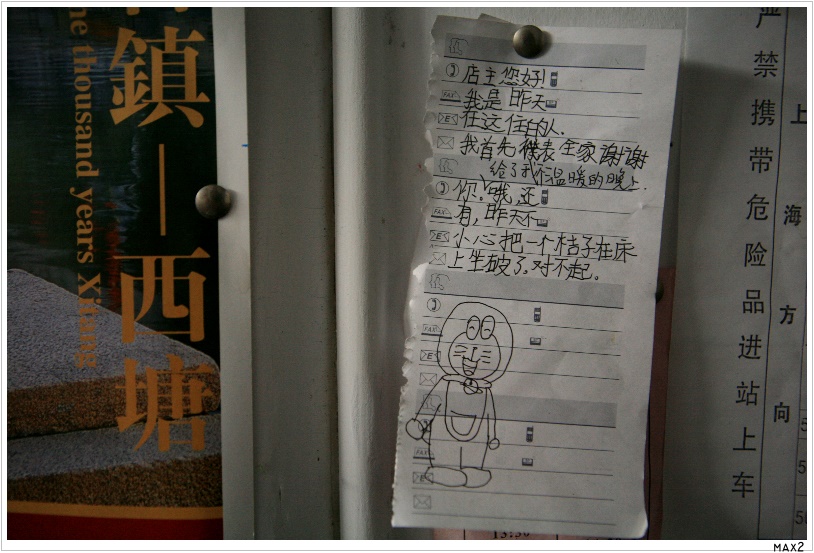 鎮—西塘
thousand years Xitang
店主您好!
我是昨天
在这住的人.
我首先代表全家谢谢
给了我们温暖的晚上.
你.哦,还
有,昨天不
小心把一个桔子在床
上坐破了.对不起。
FAX
FAX
FAX
FAX
严禁携带危险品进站上车
上海方向
MAX2